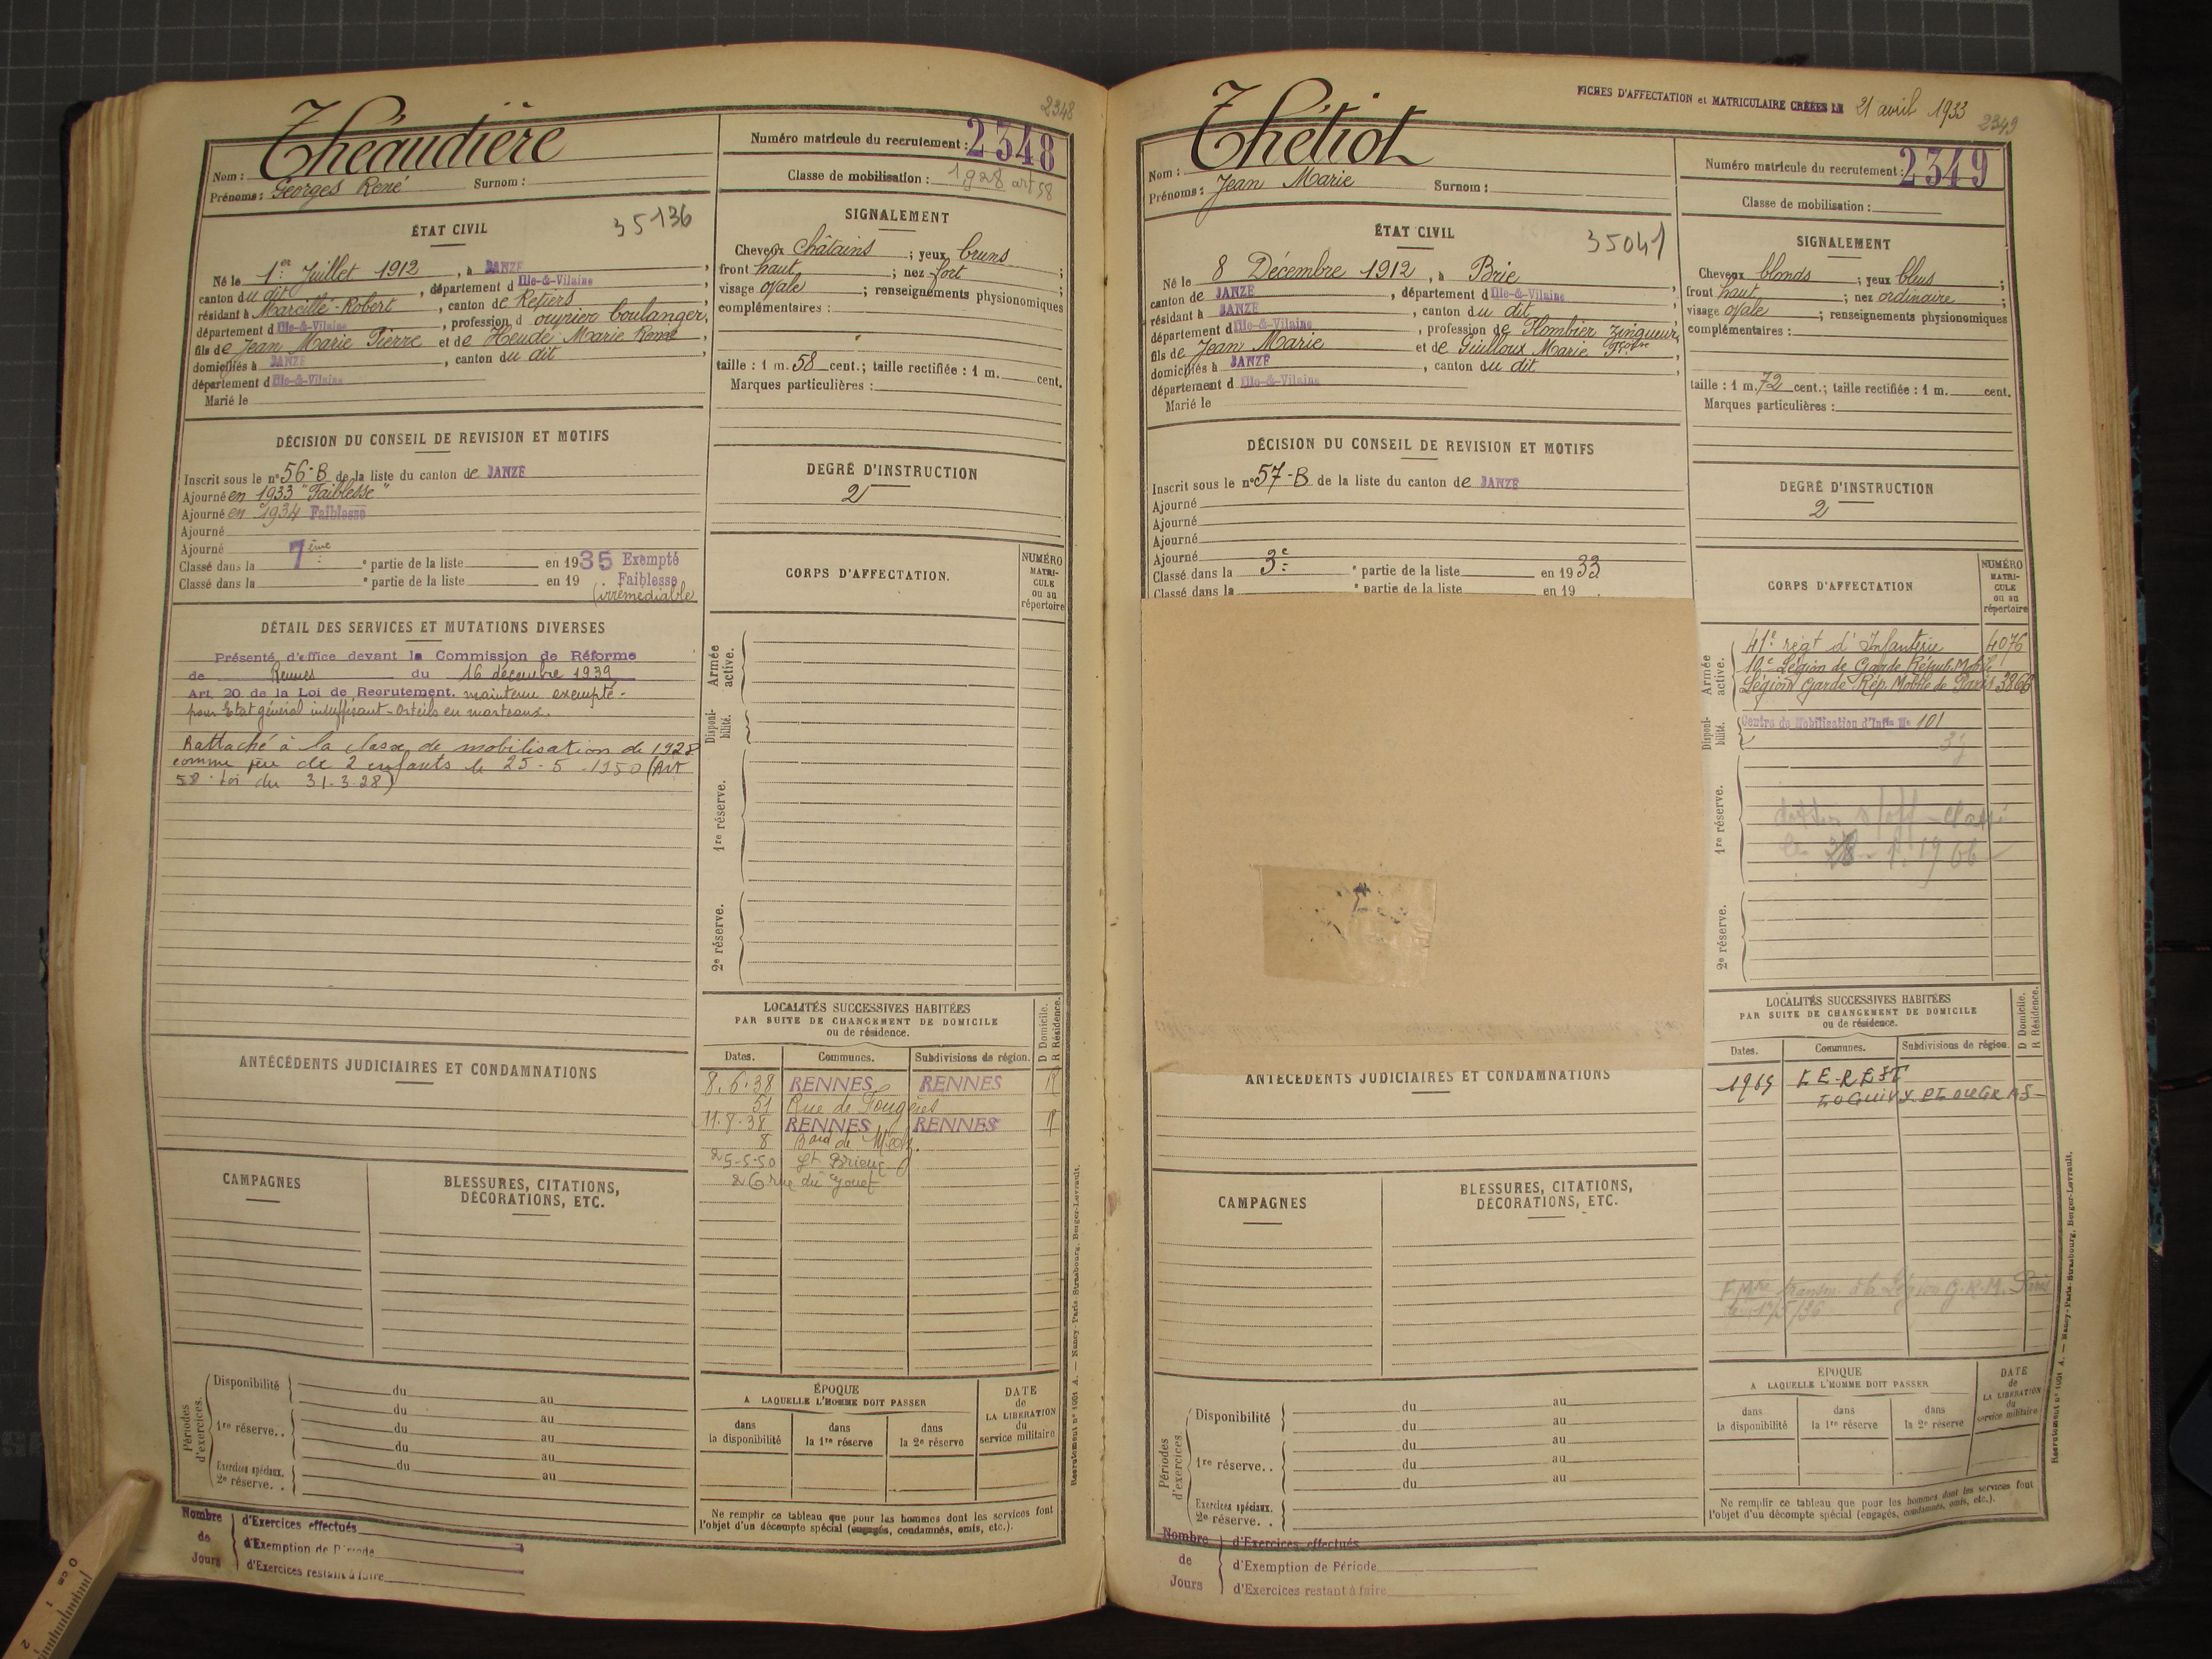 2348
Théaudière
Nom :
Prénoms : Georges René Surnom :
Numéro matricule du recrutement : 2348
Classe de mobilisation : 1928 art 58
ÉTAT CIVIL
35136
Né le 1er Juillet 1912, à JANZÉ,
canton du dit, département d Ille-&-Vilaine
résidant à Marcillé-Robert, canton de Retiers,
département d Ille-&-Vilaine, profession d ouvrier boulanger,
fils de Jean Marie Pierre et de Heudé Marie Renée,
domiciliés à JANZÉ, canton du dit,
département d Ille-&-Vilaine
Marié le
SIGNALEMENT
Cheveux châtains ; yeux bruns ;
front haut ; nez fort ;
visage ovale ; renseignements physionomiques
complémentaires :
taille : 1 m. 58 cent.; taille rectifiée : 1 m. cent.
Marques particulières :
DÉCISION DU CONSEIL DE REVISION ET MOTIFS
Inscrit sous le n° 56-B de la liste du canton de JANZÉ
Ajourné en 1933 "Faiblesse"
Ajourné en 1934 Faiblesse
Ajourné
Ajourné
Classé dans la 7ème ° partie de la liste en 1935 Exempté
Classé dans la ° partie de la liste en 19 . Faiblesse
(irrémédiable
DEGRÉ D'INSTRUCTION
2
DÉTAIL DES SERVICES ET MUTATIONS DIVERSES
Présenté d'office devant la Commission de Réforme
de Rennes du 16 décembre 1939
Art. 20 de la Loi de Recrutement. maintenu exempté.
pour Etat général insuffisant - Orteils en marteaux.
Rattaché à la classe de mobilisation de 1928
comme père de 2 enfants le 25-5-1950 (Art
58 loi du 31-3-28)
CORPS D'AFFECTATION.
NUMÉRO
MATRI-
CULE
ou au
répertoire
Armée
active.
Disponi-
bilité.
1re réserve.
2e réserve.
LOCALITÉS SUCCESSIVES HABITÉES
PAR SUITE DE CHANGEMENT DE DOMICILE
ou de résidence.
D Domicile.
R Résidence.
Dates. Communes. Subdivisions de région.
8.6.38 RENNES RENNES R
51 Rue de Fougères
11.8.38 RENNES RENNES R
8 Bard de Metz.
25-5-50 St Brieuc
26 rue du Gouet
ANTÉCÉDENTS JUDICIAIRES ET CONDAMNATIONS
CAMPAGNES
BLESSURES, CITATIONS,
DÉCORATIONS, ETC.
Périodes
d'exercices.
Disponibilité du au
du au
1re réserve. . du au
du au
Exercices spéciaux. du au
2e réserve. .
ÉPOQUE
A LAQUELLE L'HOMME DOIT PASSER
dans
la disponibilité
dans
la 1re réserve
dans
la 2e réserve
DATE
de
LA LIBÉRATION
du
service militaire
Ne remplir ce tableau que pour les hommes dont les services font
l'objet d'un décompte spécial (engagés, condamnés, omis, etc.).
Nombre
de
Jours
d'Exercices effectués
d'Exemption de Période
d'Exercices restant à faire
Recrutement n° 1001 A. — Nancy-Paris-Strasbourg, Berger-Levrault.
FICHES D'AFFECTATION et MATRICULAIRE CRÉÉES LE 21 avril 1933
2349
Thétiot
Nom :
Prénoms : Jean Marie Surnom :
Numéro matricule du recrutement : 2349
Classe de mobilisation :
ÉTAT CIVIL
35041
Né le 8 Décembre 1912, à Brie,
canton de JANZÉ, département d Ille-&-Vilaine
résidant à JANZÉ, canton du dit,
département d Ille-&-Vilaine, profession de Plombier zingueur,
fils de Jean Marie et de Guilloux Marie Fçoise,
domiciliés à JANZÉ, canton du dit,
département d Ille-&-Vilaine
Marié le
SIGNALEMENT
Cheveux blonds ; yeux bleus ;
front haut ; nez ordinaire ;
visage ovale ; renseignements physionomiques
complémentaires :
taille : 1 m. 72 cent.; taille rectifiée : 1 m. cent.
Marques particulières :
DÉCISION DU CONSEIL DE REVISION ET MOTIFS
Inscrit sous le n° 57-B de la liste du canton de JANZÉ
Ajourné
Ajourné
Ajourné
Ajourné
Classé dans la 3e ° partie de la liste en 1933
Classé dans la ° partie de la liste en 19 .
DEGRÉ D'INSTRUCTION
2
CORPS D'AFFECTATION
NUMÉRO
MATRI-
CULE
ou au
répertoire
Armée
active.
41e régt d'Infanterie 4076
10e Légion de Garde Répub. Mobile
Légion Garde Rép. Mobile de Paris 3866
Disponi-
bilité.
Centre de Mobilisation d'Infie No 101
1re réserve.
2e réserve.
LOCALITÉS SUCCESSIVES HABITÉES
PAR SUITE DE CHANGEMENT DE DOMICILE
ou de résidence.
D Domicile.
R Résidence.
Dates. Communes. Subdivisions de région.
1965 LE REST
LOGUIVY PLOUGRAS
F. Mle transm. à la Légion G.R.M. Paris
ANTÉCÉDENTS JUDICIAIRES ET CONDAMNATIONS
CAMPAGNES
BLESSURES, CITATIONS,
DÉCORATIONS, ETC.
Périodes
d'exercices
Disponibilité du au
du au
1re réserve. . du au
du au
du au
Exercices spéciaux.
2e réserve. .
ÉPOQUE
A LAQUELLE L'HOMME DOIT PASSER
dans
la disponibilité
dans
la 1re réserve
dans
la 2e réserve
DATE
de
LA LIBÉRATION
du
service militaire
Ne remplir ce tableau que pour les hommes dont les services font
l'objet d'un décompte spécial (engagés, condamnés, omis, etc.).
Nombre
de
Jours
d'Exercices effectués
d'Exemption de Période
d'Exercices restant à faire
Recrutement n° 1001 A. — Nancy-Paris-Strasbourg, Berger-Levrault.